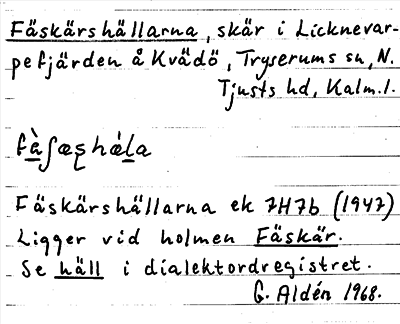 Fäskärshällarna, skär i Licknevar-
pefjärden å Kvädö, Tryserums sn, N.
Tjusts hd, Kalm. l.
fàʃæʂhála
Fäskärshällarna ek 7H7b (1947)
Ligger vid holmen Fäskär.
Se häll i dialektordregistret.
G. Aldén 1968.